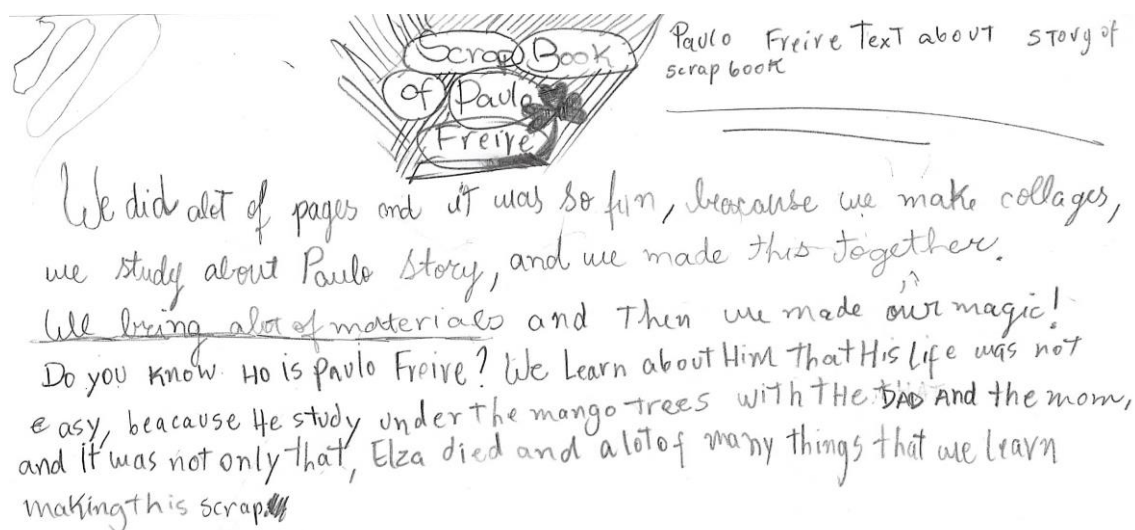 Scrap Book
of Paulo
Freire
Paulo Freire Text about story of
scrap book
We did alot of pages and it was so fun, beacause we make collages,
we study about Paulo Story, and we made this together.
We bring alot of materials and Then we made our magic!
Do you know Ho is Paulo Freire? We Learn about Him that His life was not
easy, beacause He study under the mango trees with tHe DAD And the mom,
and it was not only that, Elza died and a lot of many things that we learn
making this scrap.